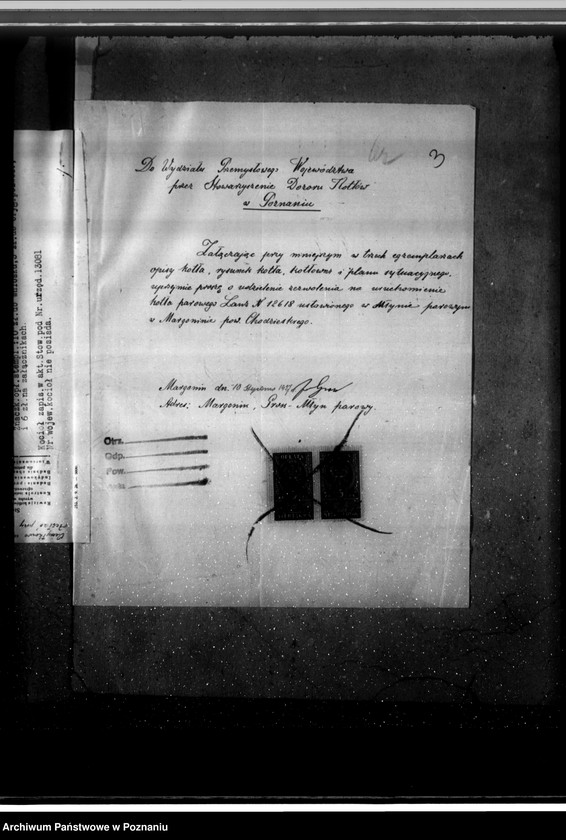 3
Do Wydziału Przemysłowego Województwa
przez Stowarzyszenie Dozoru Kotłów
w Poznaniu
Załączając przy niniejszym w trzech egzemplarzach
opisy kotła, rysunki kotła, kotłowni i planu sytuacyjnego,
uprzejmie proszę o udzielenie zezwolenia na uruchomienie
kotła parowego Lanz N 12618 ustawionego w Młynie parowym
w Margoninie pow. Chodzieskiego.
Margonin dn. 10 Stycznia
Adres: Margonin, Młyn parowy.
Otrz.
Odp.
Pow.
i 6 zł. na załącznikach.
Kocioł zapis. w akt. Stow. pod Nr. urzęd. 13081
Nr. wojew. kocioł nie posiada.
Archiwum Państwowe w Poznaniu